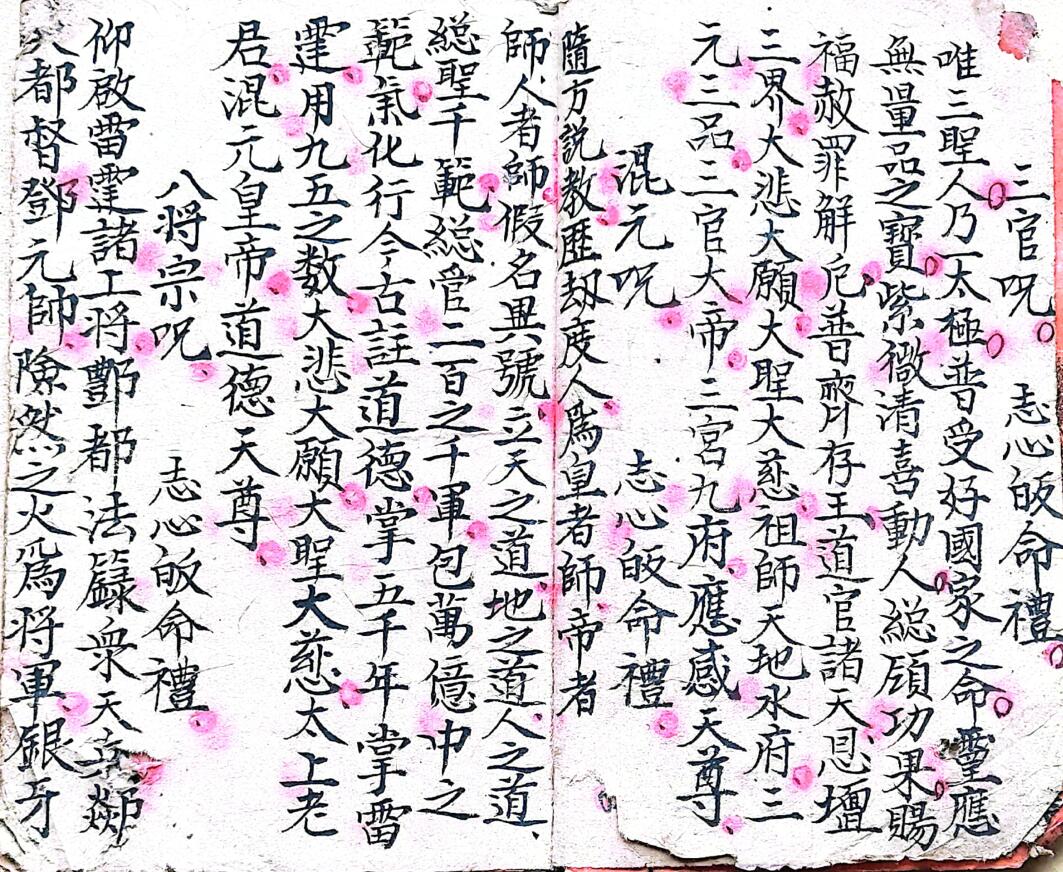 三官呪 志心皈命禮
唯三聖人乃一太極普受好國家之命靈應
無量品之寶紫微清喜動人総領功果賜
福赦罪解厄普齊存王道官諸天恩壇
三界大悲大願大聖大慈祖師天地水府三
元三品三官大帝三宮九府應感天尊
混元呪 志心皈命禮
隨方説教歷劫度人為皇者師帝者
師人者師假名異號立天之道地之道人之道
総聖千範総管二百之千軍包萬億中之
範炁化行今古註道德掌五千年掌雷
霆用九五之数大悲大願大聖大慈太上老
君混元皇帝道德天尊
八将宗呪 志心皈命禮
仰啟雷霆諸工将酆都法籙衆天京
大都督鄧元帥險然之火為将軍銀牙